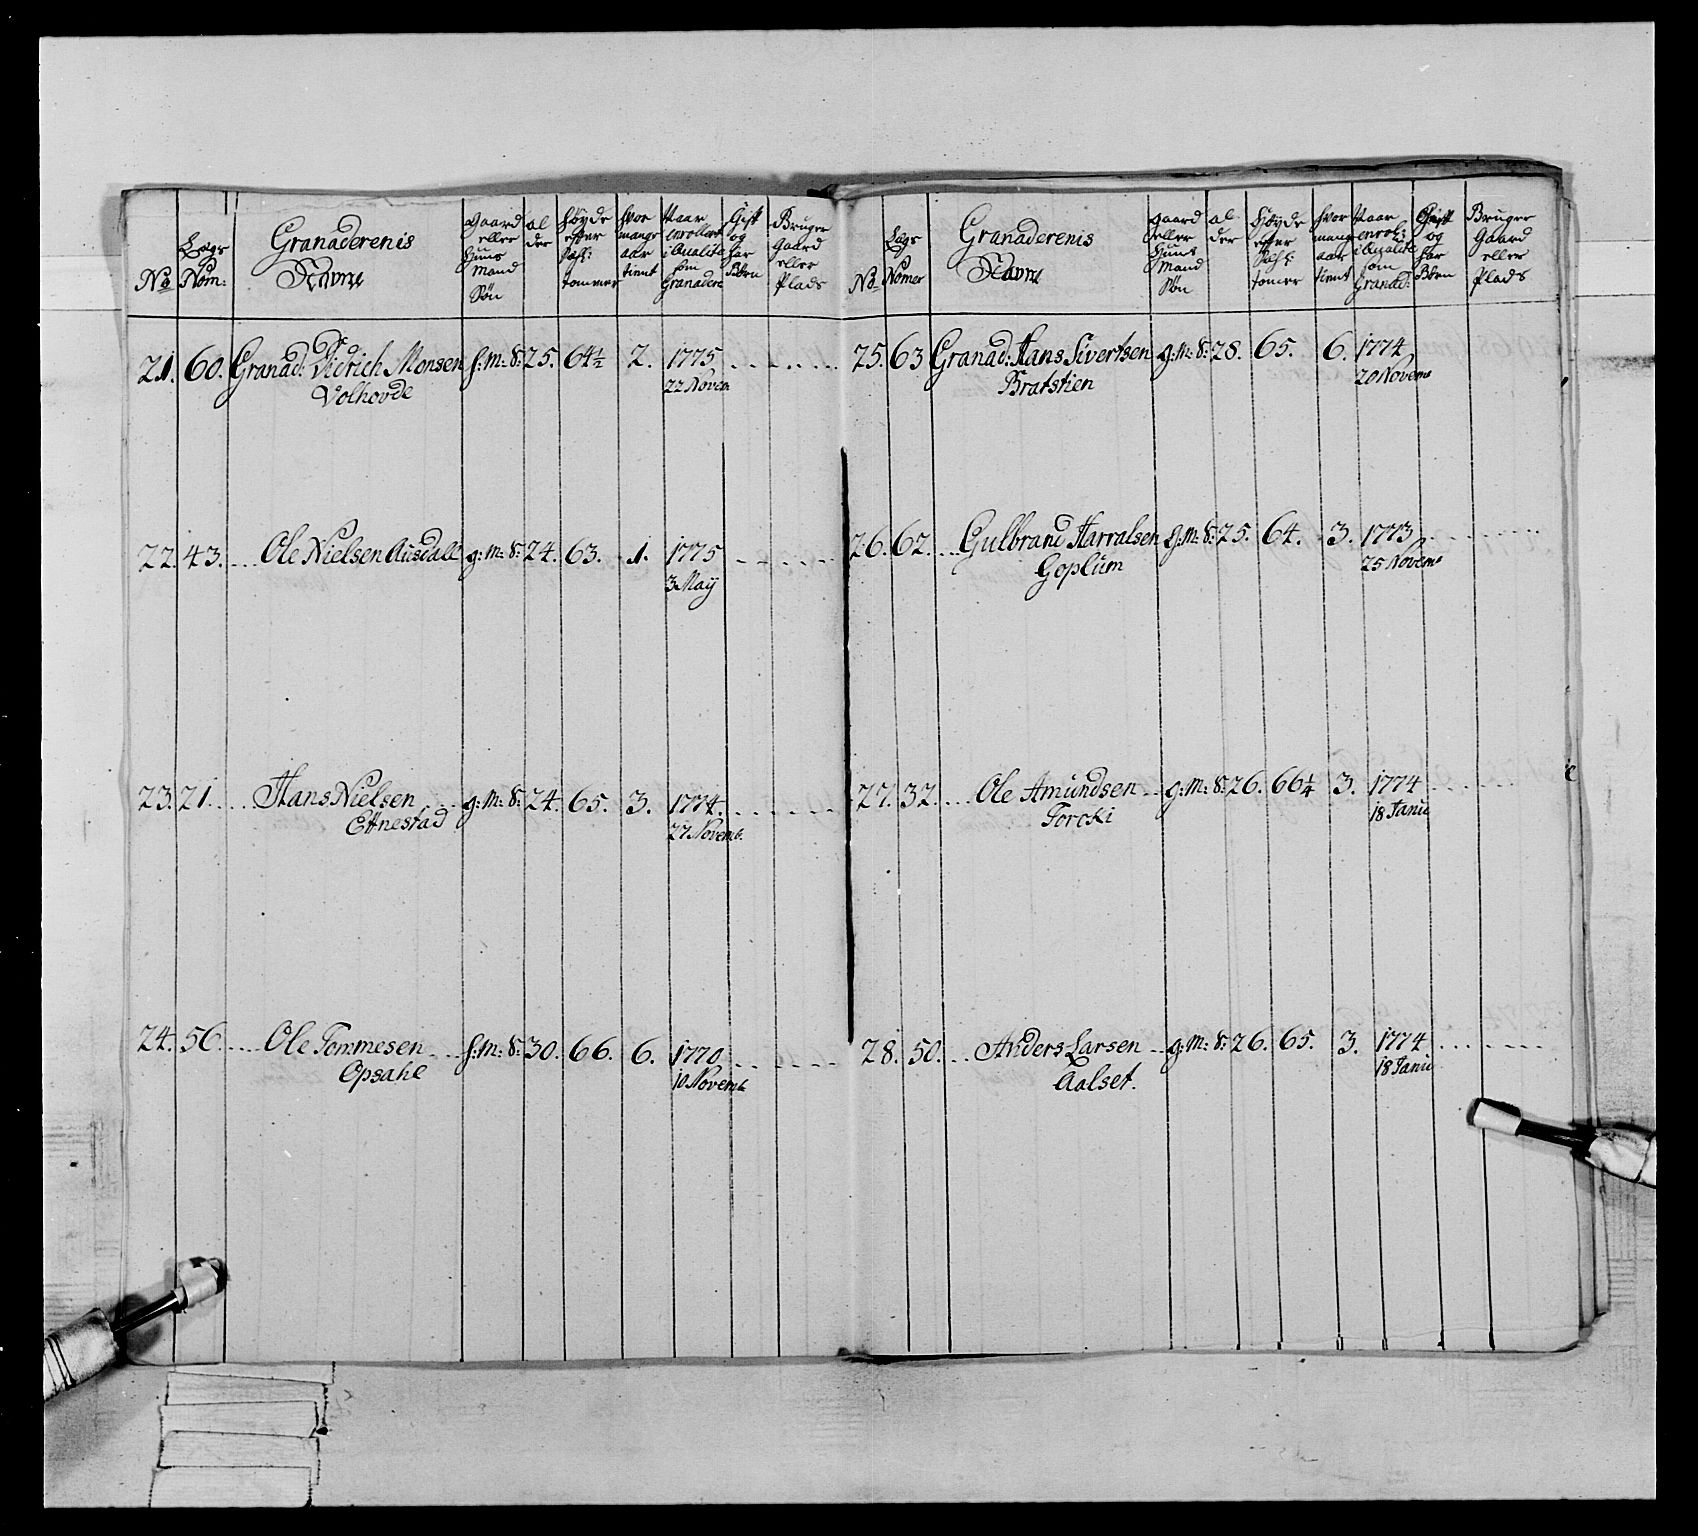 No
Lægs
Nom:
Granaderenis
Navne
Gaard
eller
Huus
Mand
Søn
al
der
Høyde
efter
Sæl:
tommer
hvor
mange
aar
tient
Naar
enrolleret
i Qualite
som
Granadeer
Gift
og
har
Børn
Bruger
Gaard
eller
Plads
21. 60. Granad: Didrich Monsen h: m: S: 25. 64½ 2. 1775
Volhovde 22 Novem
22. 43. Ole Nielsen Ausdall g: m: S: 24. 63. 1. 1775
3 Maÿ
23. 21. Hans Nielsen g: m: S: 24. 65. 3. 1774.
Ettnestad 27 Novemb.
24. 56. Ole Tommesen h: m: S: 30. 66. 6. 1770
Opsahl 10 Novemb
No
Lægs
Nomer
Granaderenis
Navne
Gaard
eller
Huus
Mand
Søn
al
der
Høyde
efter
tomer
hvor
mange
aar
tient
Naar
enrol:
i Qualite
som
Granad:
Gift
og
har
Børn
Bruger
Gaard
eller
Plads
25. 63 Granad. Hans Sivertsen g: m: S: 28. 65. 6. 1774
Bratstien 20 Novem
26. 62. Gulbrand Harralsen g: m: S: 25. 64. 3. 1773
Goplum 25 Novem
27. 32. Ole Amundsen g: m: S: 26. 66¼ 3. 1774
Torcki 18 Janu
28. 50. Anders Larsen g: m: S: 26. 65. 3. 1774
Aalset. 18 Janu